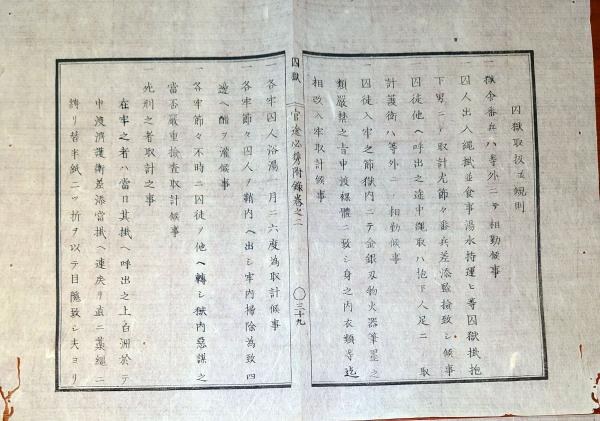 囚獄取扱規則
一 獄舎番兵ハ等外ニテ相勤候事
一 囚人出入縄掛並食事湯水持運ヒ等囚獄掛抱
下男ニテ取計尤節々番兵差添監撿致シ候事
一 囚徒他ヘ呼出之途中縄取ハ抱下人足ニテ取
計護衛ハ等外ニテ相勤候事
一 囚徒入牢之節獄内ニテ金銀刃物火器筆墨之
類嚴禁之旨申渡裸體ニ致シ身之内衣類等迄
相改入牢取計候事
囚獄 官途必携附録巻之二 〇三十九
一 各牢囚人浴湯一月ニ六度為取計候事
一 各牢節々囚人ヲ鞘内ヘ出シ牢内掃除為致四
邊ヘ醋ヲ灌候事
一 各牢節々不時ニ囚徒ヲ他ヘ轉シ獄内惡謀之
當否嚴重撿査取計候事
一 死刑之者取計之事
在牢之者ハ當日其掛ヘ呼出之上白洲於テ
申渡濟護衛差添當掛ヘ連戻リ直ニ藁縄ニ
縛リ替半紙二ッ折ヲ以テ目隠致シ夫ヨリ